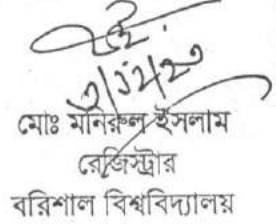 মোঃ মনিরুল ইসলাম
রেজিস্ট্রার
বরিশাল বিশ্ববিদ্যালয়